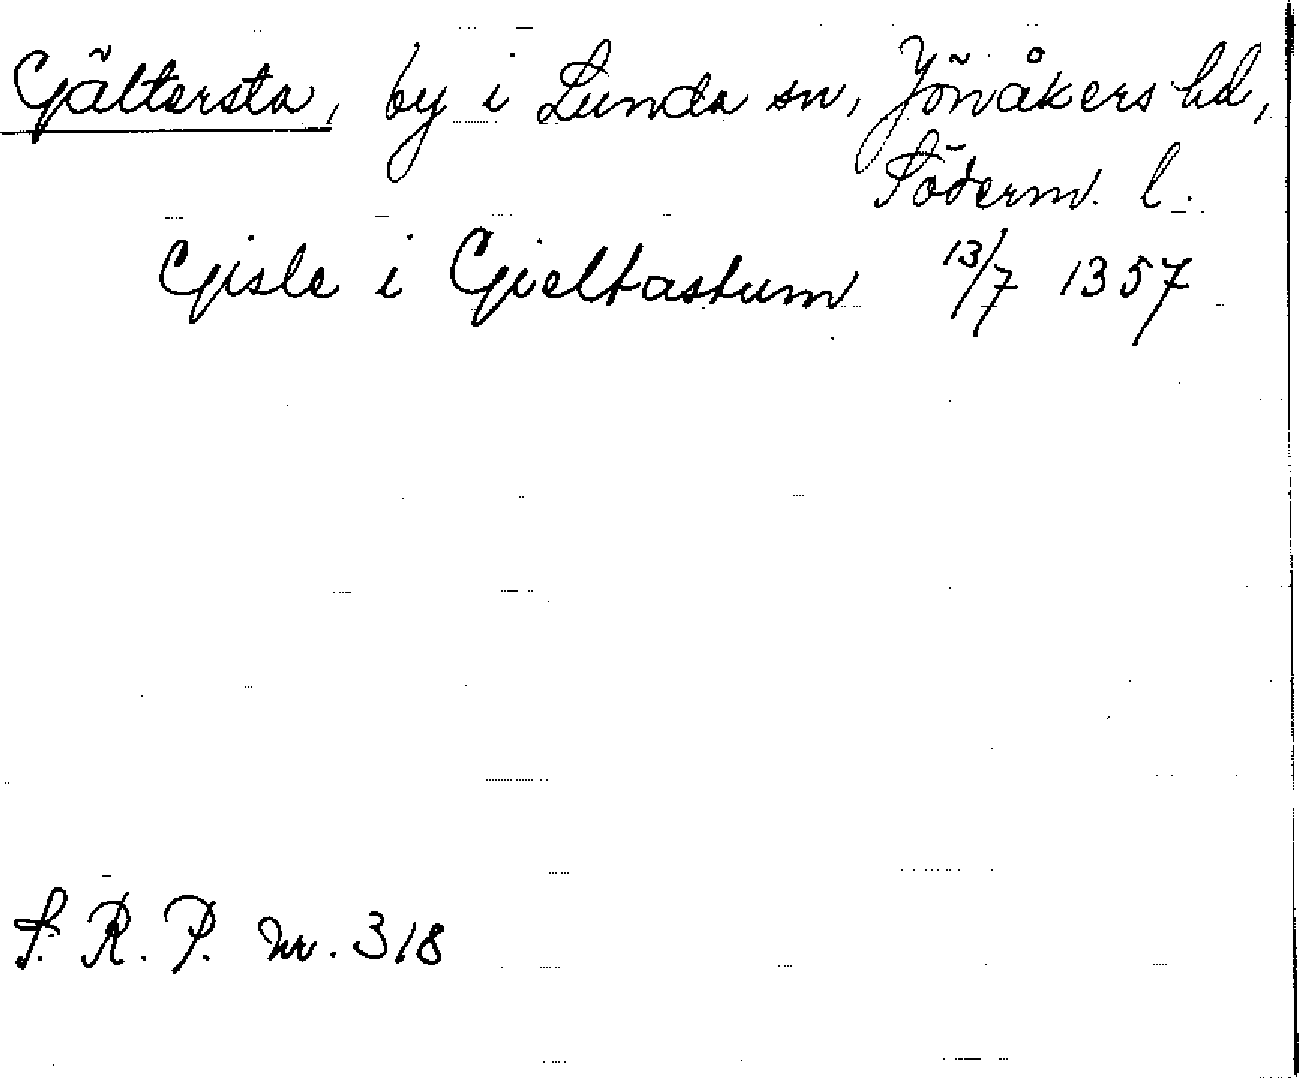 Gältersta, by i Lunda sn, Jönåkers hd,
Söderm. l.
Gisle i Gieltastum 13/7 1357
S. R. P. nr. 318